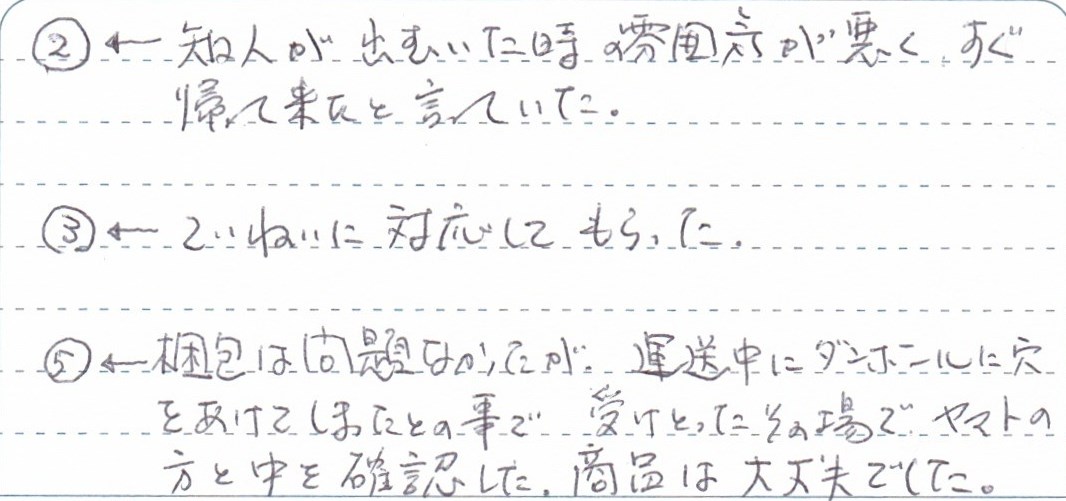 ② ← 知人が出むいた時の雰囲気が悪く、すぐ
帰って来たと言っていた。
③ ← ていねいに対応してもらった。
⑤ ← 梱包は問題なかったが、運送中にダンボールに穴
をあけてしまったとの事で受けとったその場でヤマトの
方と中を確認した。商品は大丈夫でした。